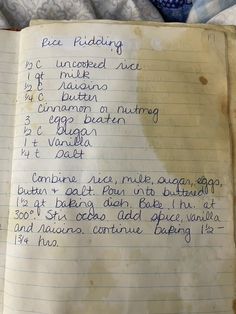 Rice Pudding
1/2 C uncooked rice
1 qt milk
1/2 C raisins
1/4 C butter
Cinnamon or nutmeg
3 eggs beaten
1/2 C sugar
1 t Vanilla
1/4 t salt
Combine rice, milk, sugar, eggs,
butter + salt. Pour into buttered
1 1/2 qt baking dish. Bake 1 hr. at
300°. Stir occas. add spice, vanilla
and raisins. continue baking 1 1/2 -
1 3/4 hrs.